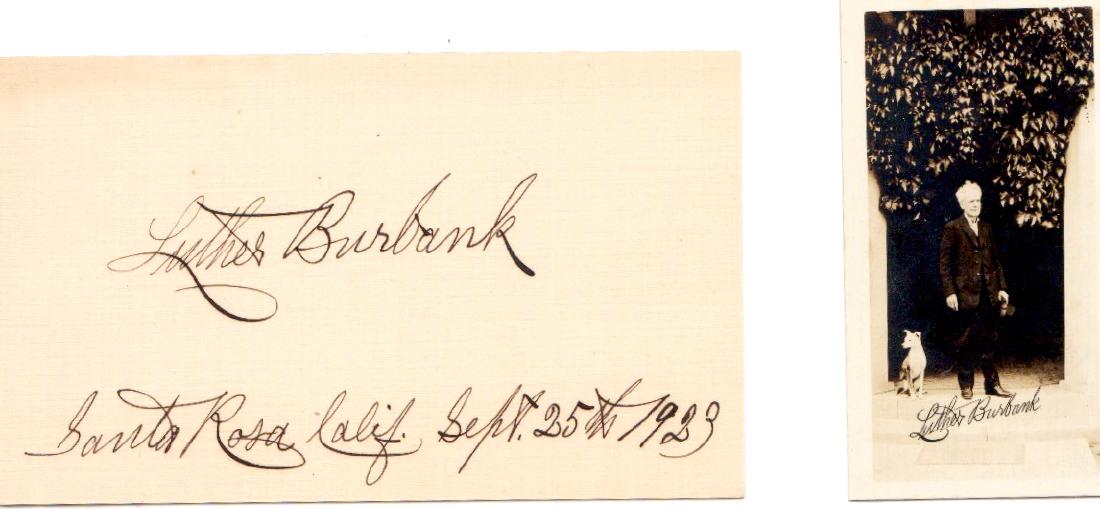 Luther Burbank
Santa Rosa Calif. Sept. 25th 1923
Luther Burbank